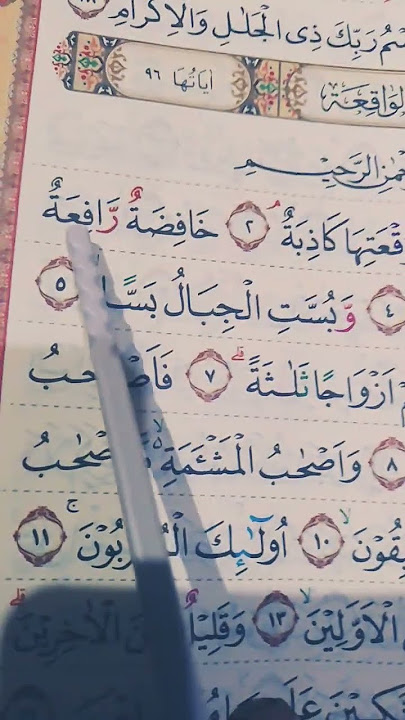 سْمُ رَبِّكَ ذِى الْجَلٰلِ وَالْاِكْرَامِ
اٰيَاتُهَا ٩٦
لْوَاقِعَة
حْمٰنِ الرَّحِيْمِ
قْعَتِهَا كَاذِبَةٌ ۘ ٢ خَافِضَةٌ رَّافِعَةٌ
٤ وَّبُسَّتِ الْجِبَالُ بَسًّا ٥
اَزْوَاجًا ثَلٰثَةً ۗ ٧ فَاَصْحٰبُ
٨ وَاَصْحٰبُ الْمَشْـَٔمَةِ ەۙ اَصْحٰبُ
ِقُوْنَۙ ١٠ اُولٰۤىِٕكَ الْمُقَرَّبُوْنَۚ ١١
الْاَوَّلِيْنَۙ ١٣ وَقَلِيْلٌ مِّنَ الْاٰخِرِيْنَۗ